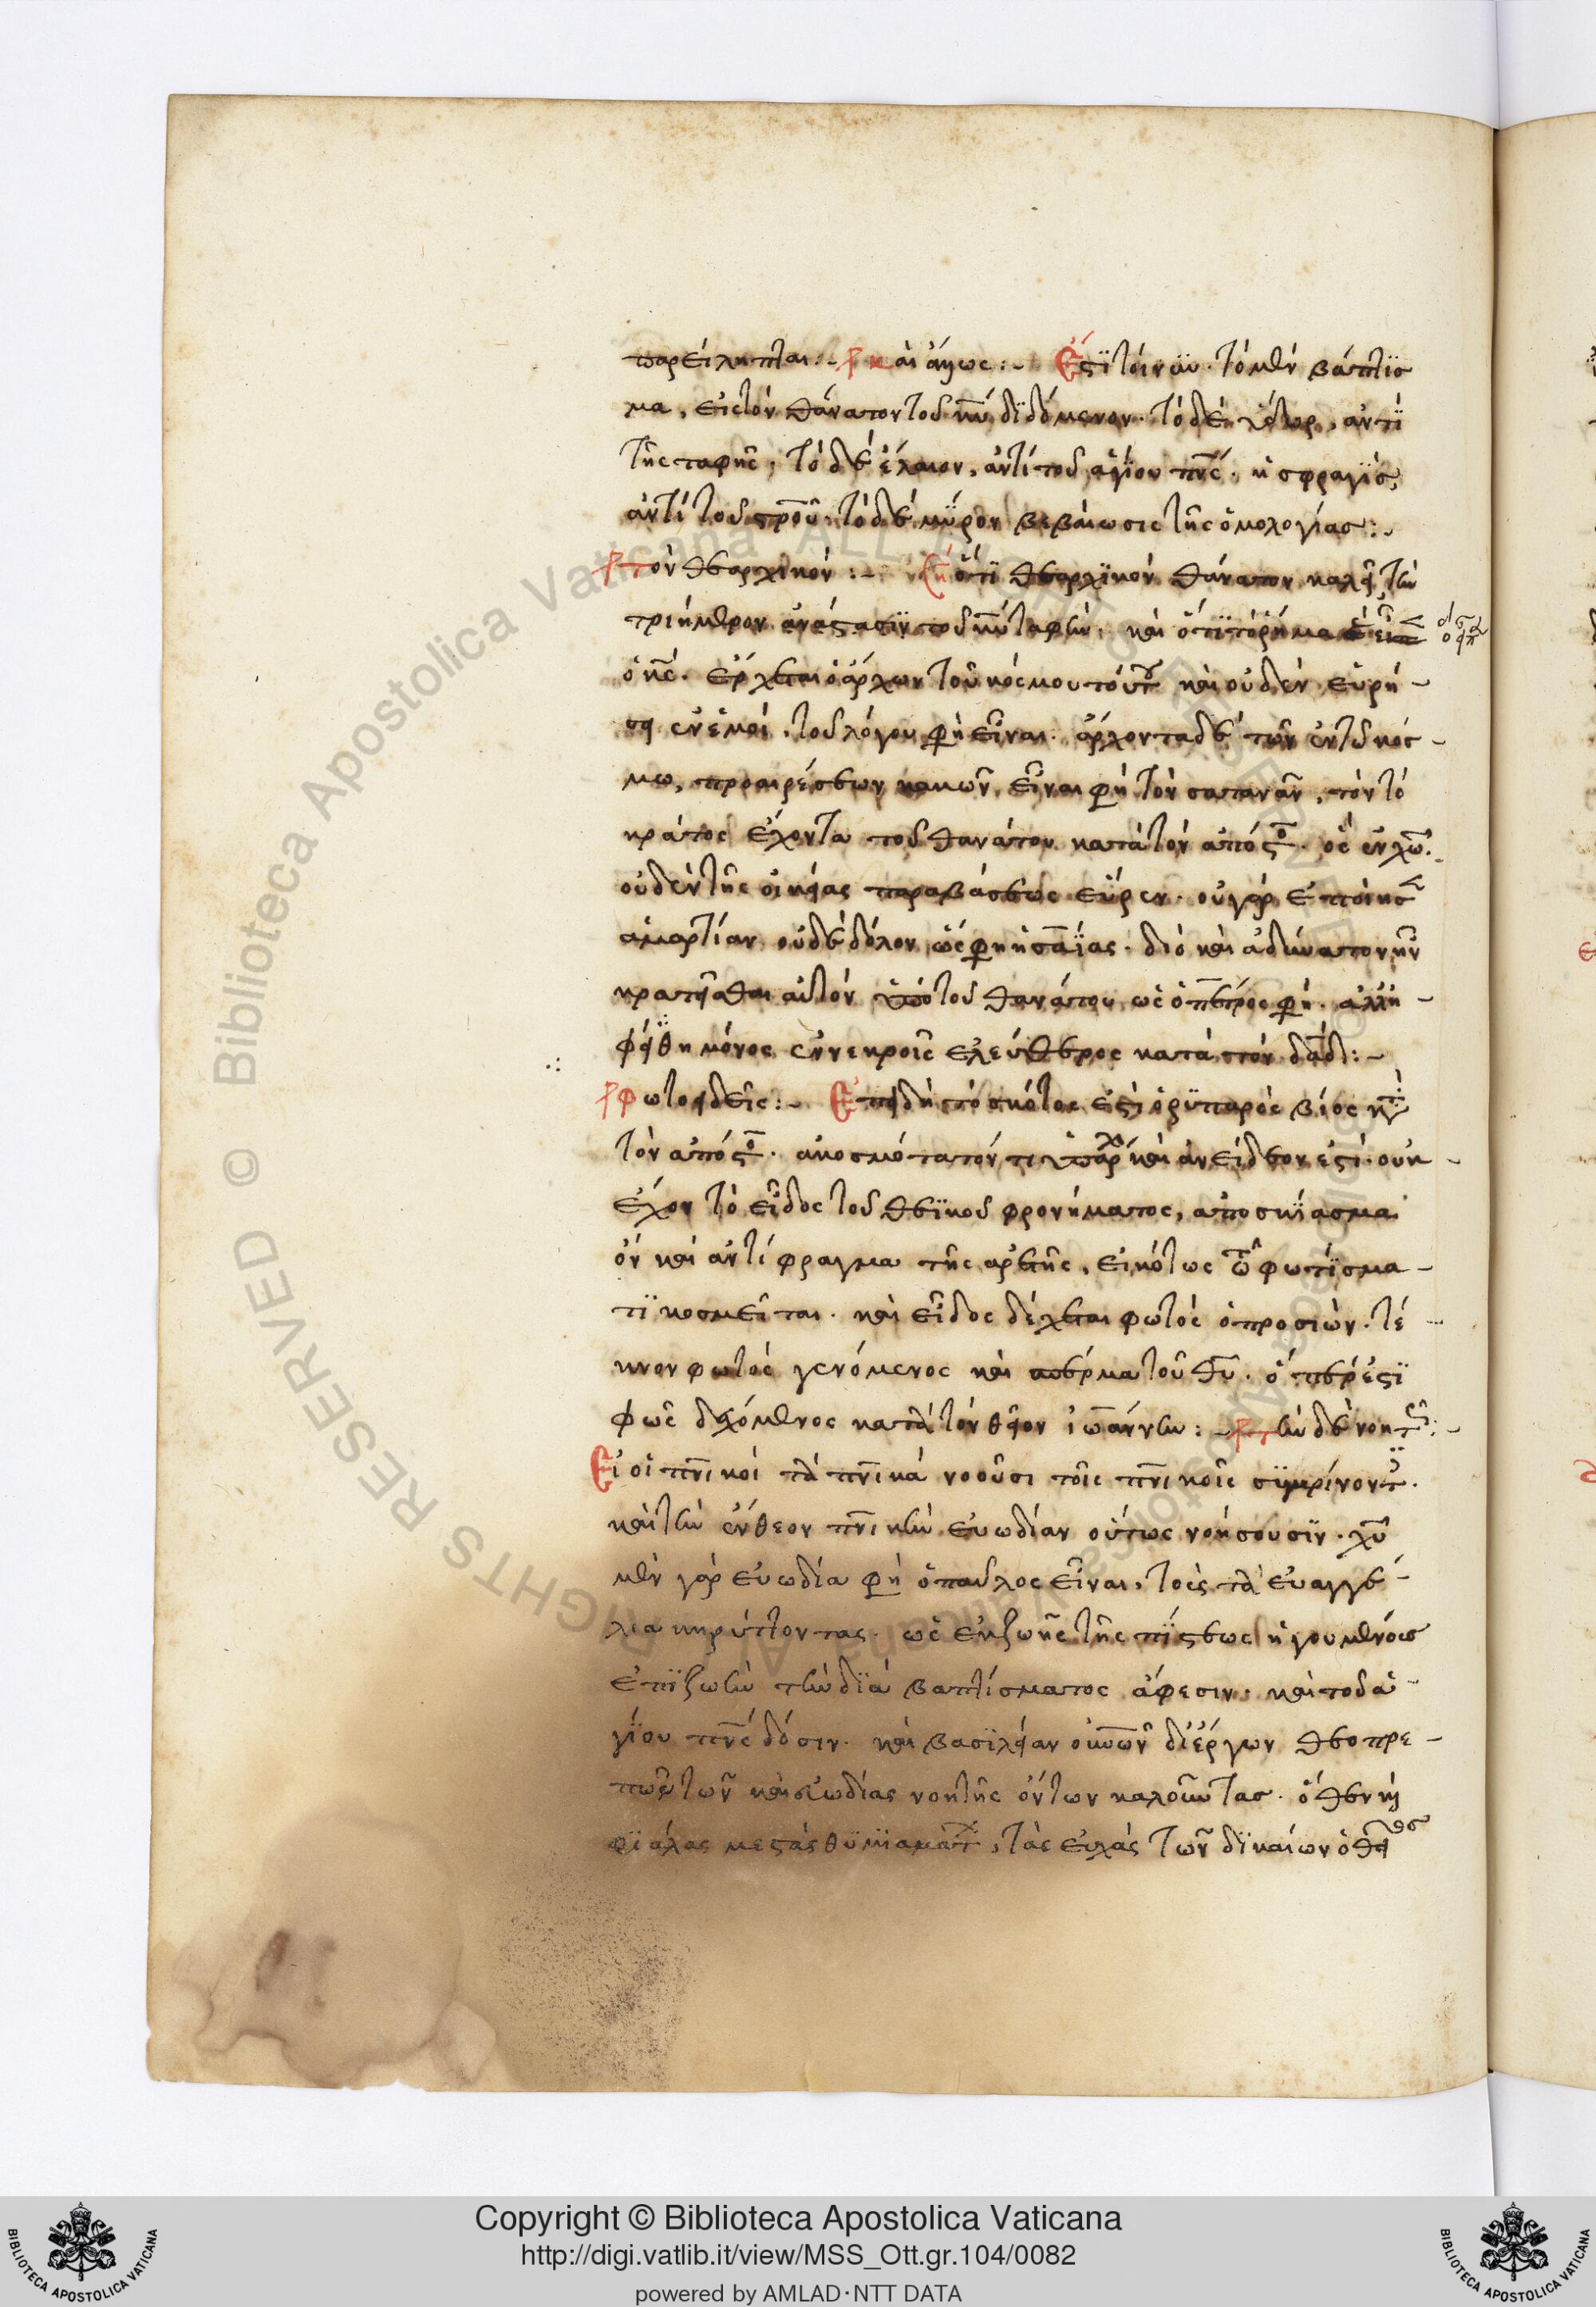 παρείληπται:~ καὶ ἄλλως:~ Ἔστϊ τοίνυν. τὸ μὲν βάπτϊσ
μα, εἰς τὸν θάνατον τοῦ κῡ δϊδόμενον. τὸ δὲ ὕδωρ, ἀντὶ
τῆς ταφῆς, τὸ δὲ ἔλαιον, ἀντὶ τοῦ ἁγίου πνς. ἡ σφραγὶς,
ἀντὶ τοῦ σρου. τὸ δὲ μύρον βεβαίωσις τῆς ὁμολογίας:~
τὸν θεαρχικόν:~ ὅτϊ θεαρχϊκὸν θάνατον καλεῖ, τὴν
τριήμερον ἀνάστασϊν τοῦ κῡ ταφὴν. καὶ ὅτϊ τὸ ῥῆμα
ὁ κς. ἔρχεται ὁ ἄρχων τοῦ κόσμου τούτου καὶ οὐδὲν εὑρή
σει ἐν ἐμοί. τοῦ λόγου φη εἶναι. ἄρχοντα δὲ τῶν ἐν τῶ κόσ
μω, προαιρέσεων κακῶν, εἶναι φη τὸν σαταναν, τὸν τὸ
κράτος ἔχοντα τοῦ θανάτου κατὰ τὸν ἀπόστο. ὃς ἐν χω
οὐδὲν τῆς οἰκείας παραβάσεως εὗρεν. οὐ γὰρ ἐποίησε
ἁμαρτίαν οὐδὲ δόλον ὥς φη ἡσαΐας. διὸ καὶ ἀδύνατον ἦν
κρατεῖσθαι αὐτὸν ὑπὸ τοῦ θανάτου ὡς ὁ πέτρος φη. ἀλλ' ἢ
φείθη μόνος ἐν νεκροῖς ἐλεύθερος κατὰ τὸν δαδ:~
φωτοειδεῖς:~ Ἐπειδὴ τὸ σκότος ἐστὶ ὁ ῥϋπαρὸς βίος κατὰ
τὸν ἀπόστο. ἀκοσμότατόν τι ὑπάρχει καὶ ἀνείδεον ἐστὶ. οὐκ
ἔχον τὸ εἶδος τοῦ θεϊκοῦ φρονήματος, ἀποσκΐασμα
ὂν καὶ ἀντίφραγμα τῆς ἀρετῆς, εἰκότως τῶ φωτΐσμα
τϊ κοσμεῖται. καὶ εἶδος δέχεται φωτὸς ὁ προσιών. τέ
κνον φωτὸς γενόμενος καὶ σπέρμα τοῦ θῡ. ὅπερ ἐστϊ
φῶς δεχόμενος κατὰ τὸν θεῖον ἰωάννην:~ τὴν δὲ νοητῶς:~
Εἰ οἱ πνικοὶ τὰ πνικὰ νοοῦσι τοῖς πνικοῖς συγκρίνοντες.
καὶ τὴν ἔνθεον πνικὴν εὐωδίαν οὕτως νοήσουσϊν. χῡ
μὲν γὰρ εὐωδία φη ὁ παῦλος εἶναι, τοὺς τὰ εὐαγγέ
λια κηρύττοντας. ὡς ἐκ ζωῆς τῆς πΐστεως ἡγουμένους
ἐπϊ ζωὴν τὴν δϊὰ βαπτίσματος ἄφεσιν. καὶ τοῦ ἁ
γΐου πνς δόσιν. καὶ βασϊλείαν οὐνῶν δι' ἔργων θεοπρε
πῶν τῶν καὶ εὐωδίας νοητῆς ὄντων καλοῦντας. ὅθεν καὶ
φϊάλας μεστὰς θυμϊαμάτων, τὰς εὐχὰς τῶν δϊκαίων ὁ θεῖος